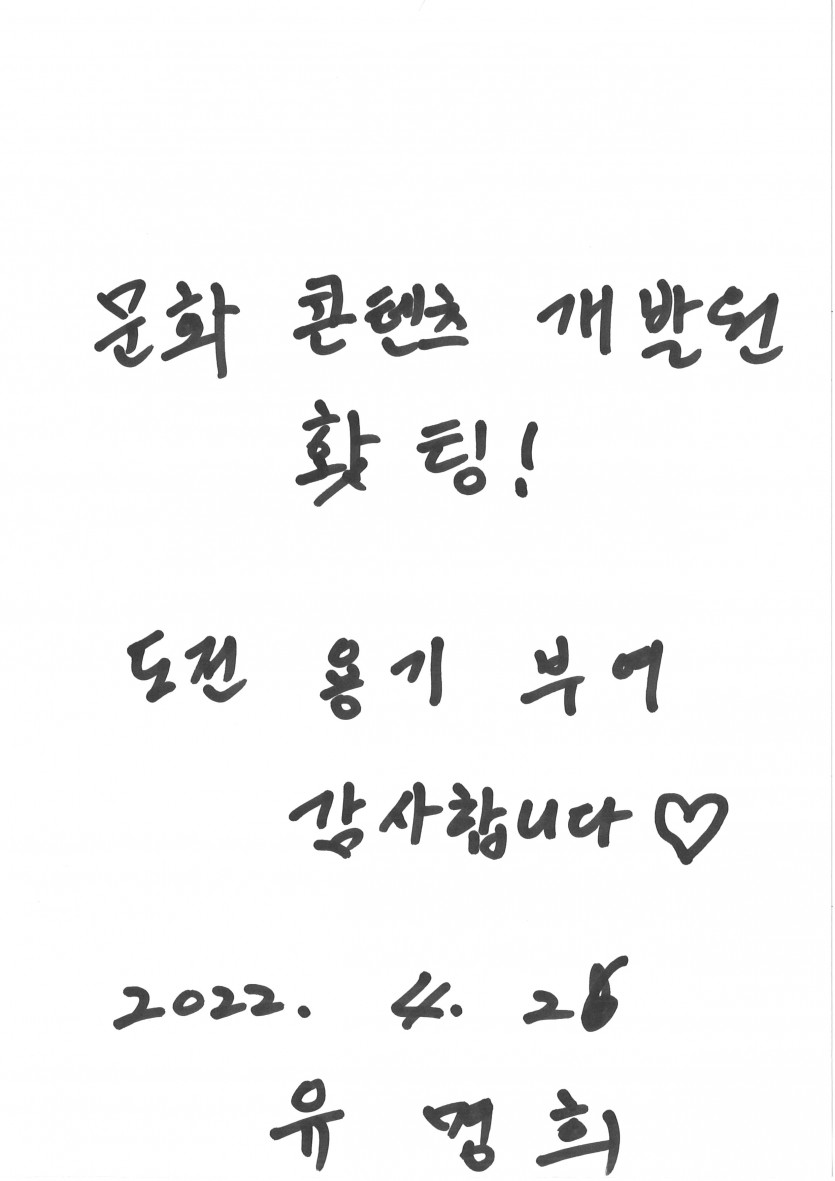 문화 콘텐츠 개발원
홧팅!
도전 용기 부여
감사합니다♡
2022. 4. 28
유명희